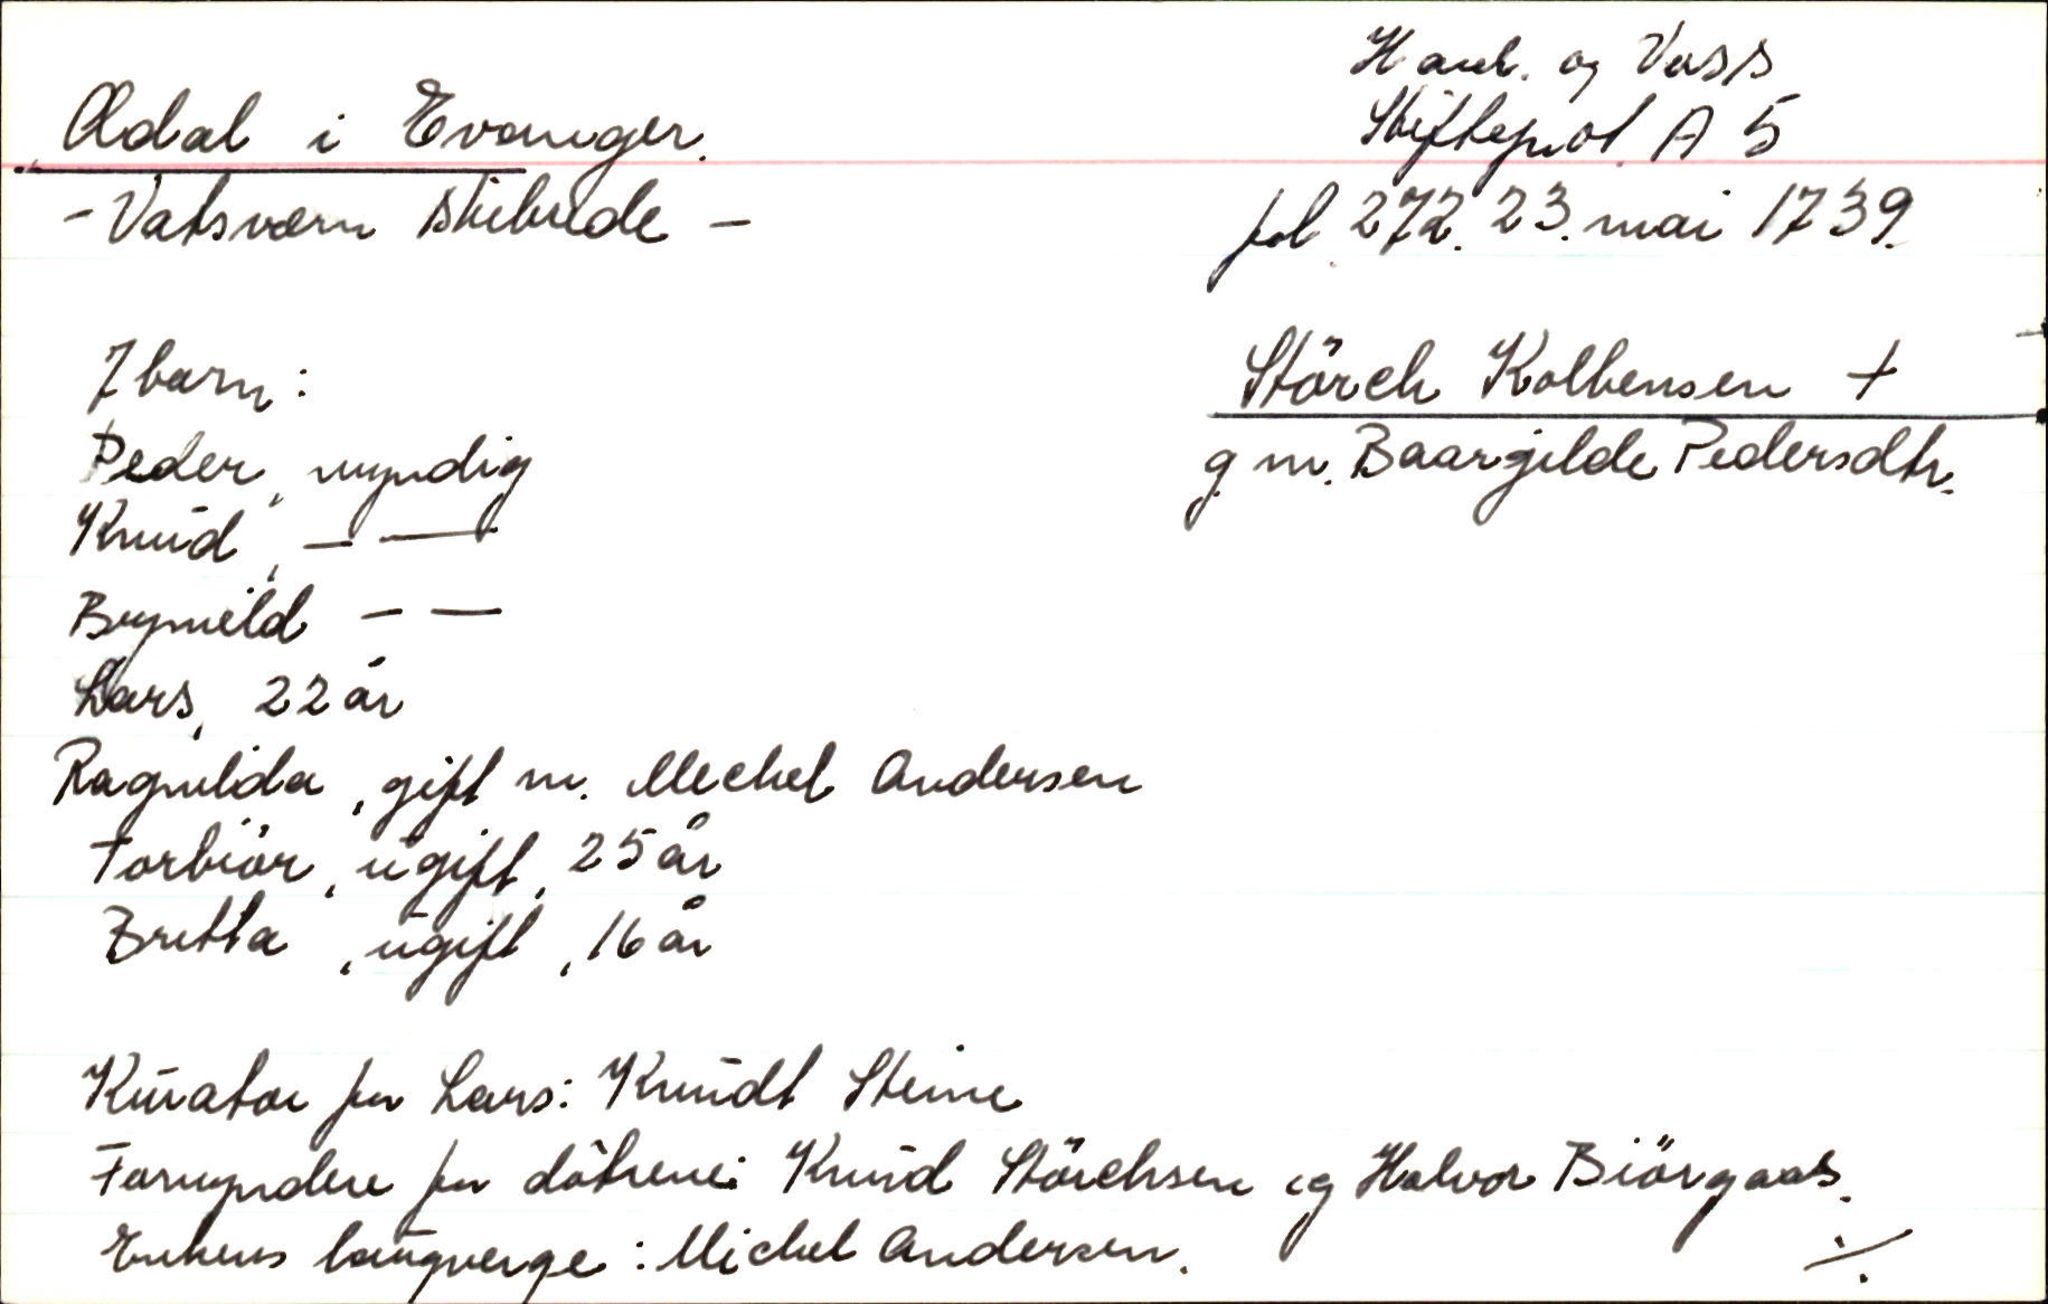 Ødal i Evanger.
- Vatsværn skibrede -
Hard. og Voss
Skifteprot. A 5
fol. 272. 23. mai 1739.
Störch Kolbensen +
g. m. Baargilde Pedersdtr.
7 barn:
Peder, myndig
Knud, - —
Brynild - —
Lars, 22 år
Ragnilda, gift m. Mechel Andersen
Torbiör, ugift, 25 år
Britta, ugift, 16 år
Kurator for Lars: Knudt Steine
Formyndere for døtrene: Knud Störchsen og Halvor Biörgaas.
Enkens laugverge: Michel Andersen.